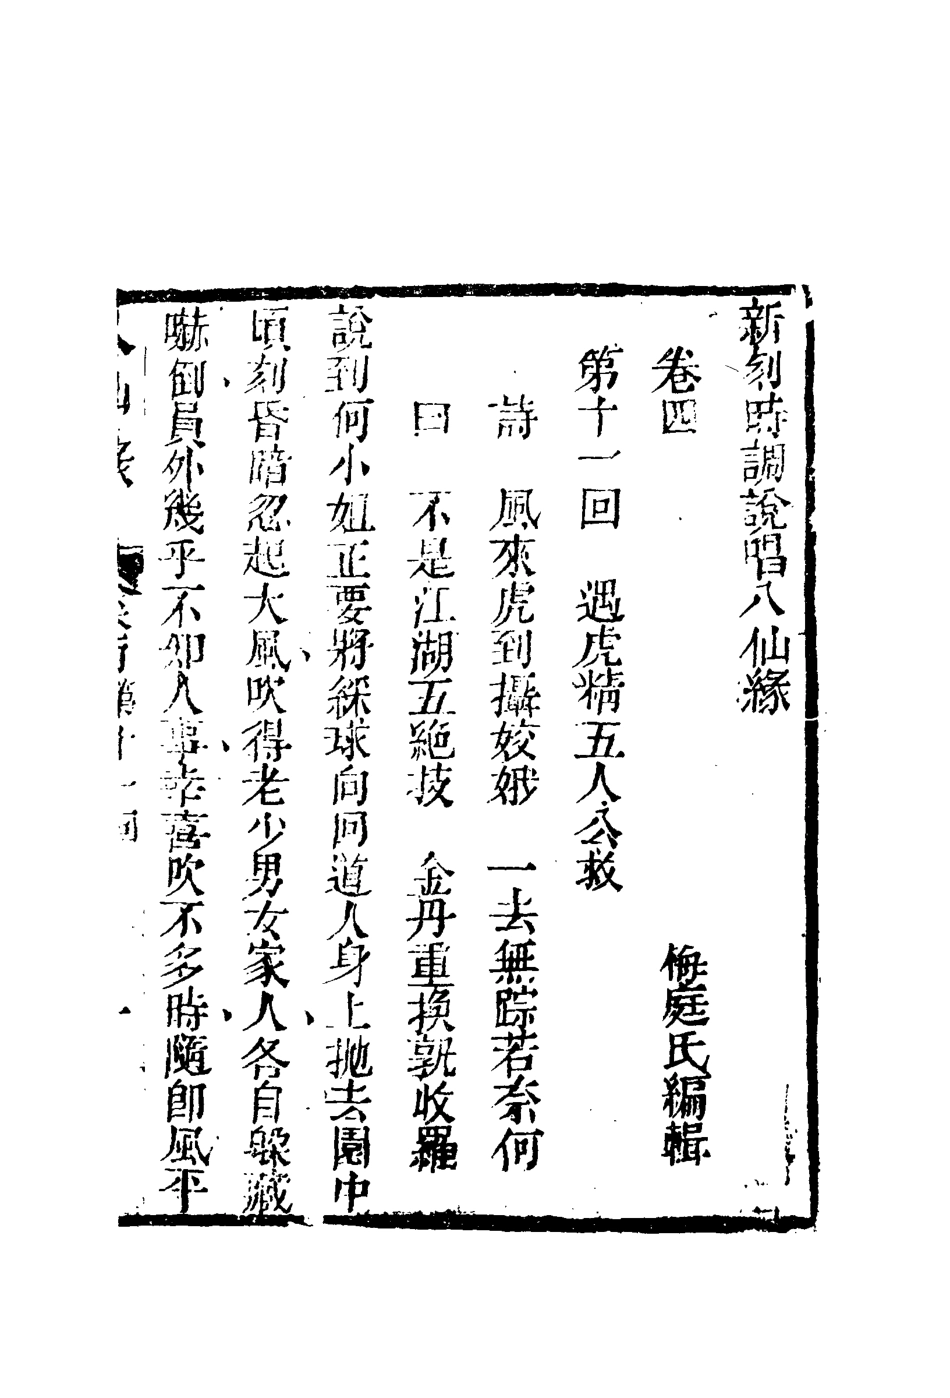 新刻時調說唱八仙緣
卷四
梅庭氏編輯
第十一回　遇虎精五人公救
詩　風來虎到攝姣娥　一去無踪若奈何
曰　不是江湖五絕技　金丹重換孰收羅
說到何小姐正要將綵球向回道人身上拋去園中
頃刻昏暗忽起大風吹得老少男女家人各自躱藏
嚇倒員外幾乎不知人事幸喜吹不多時隨卽風平
八仙緣　卷四第十一回　一